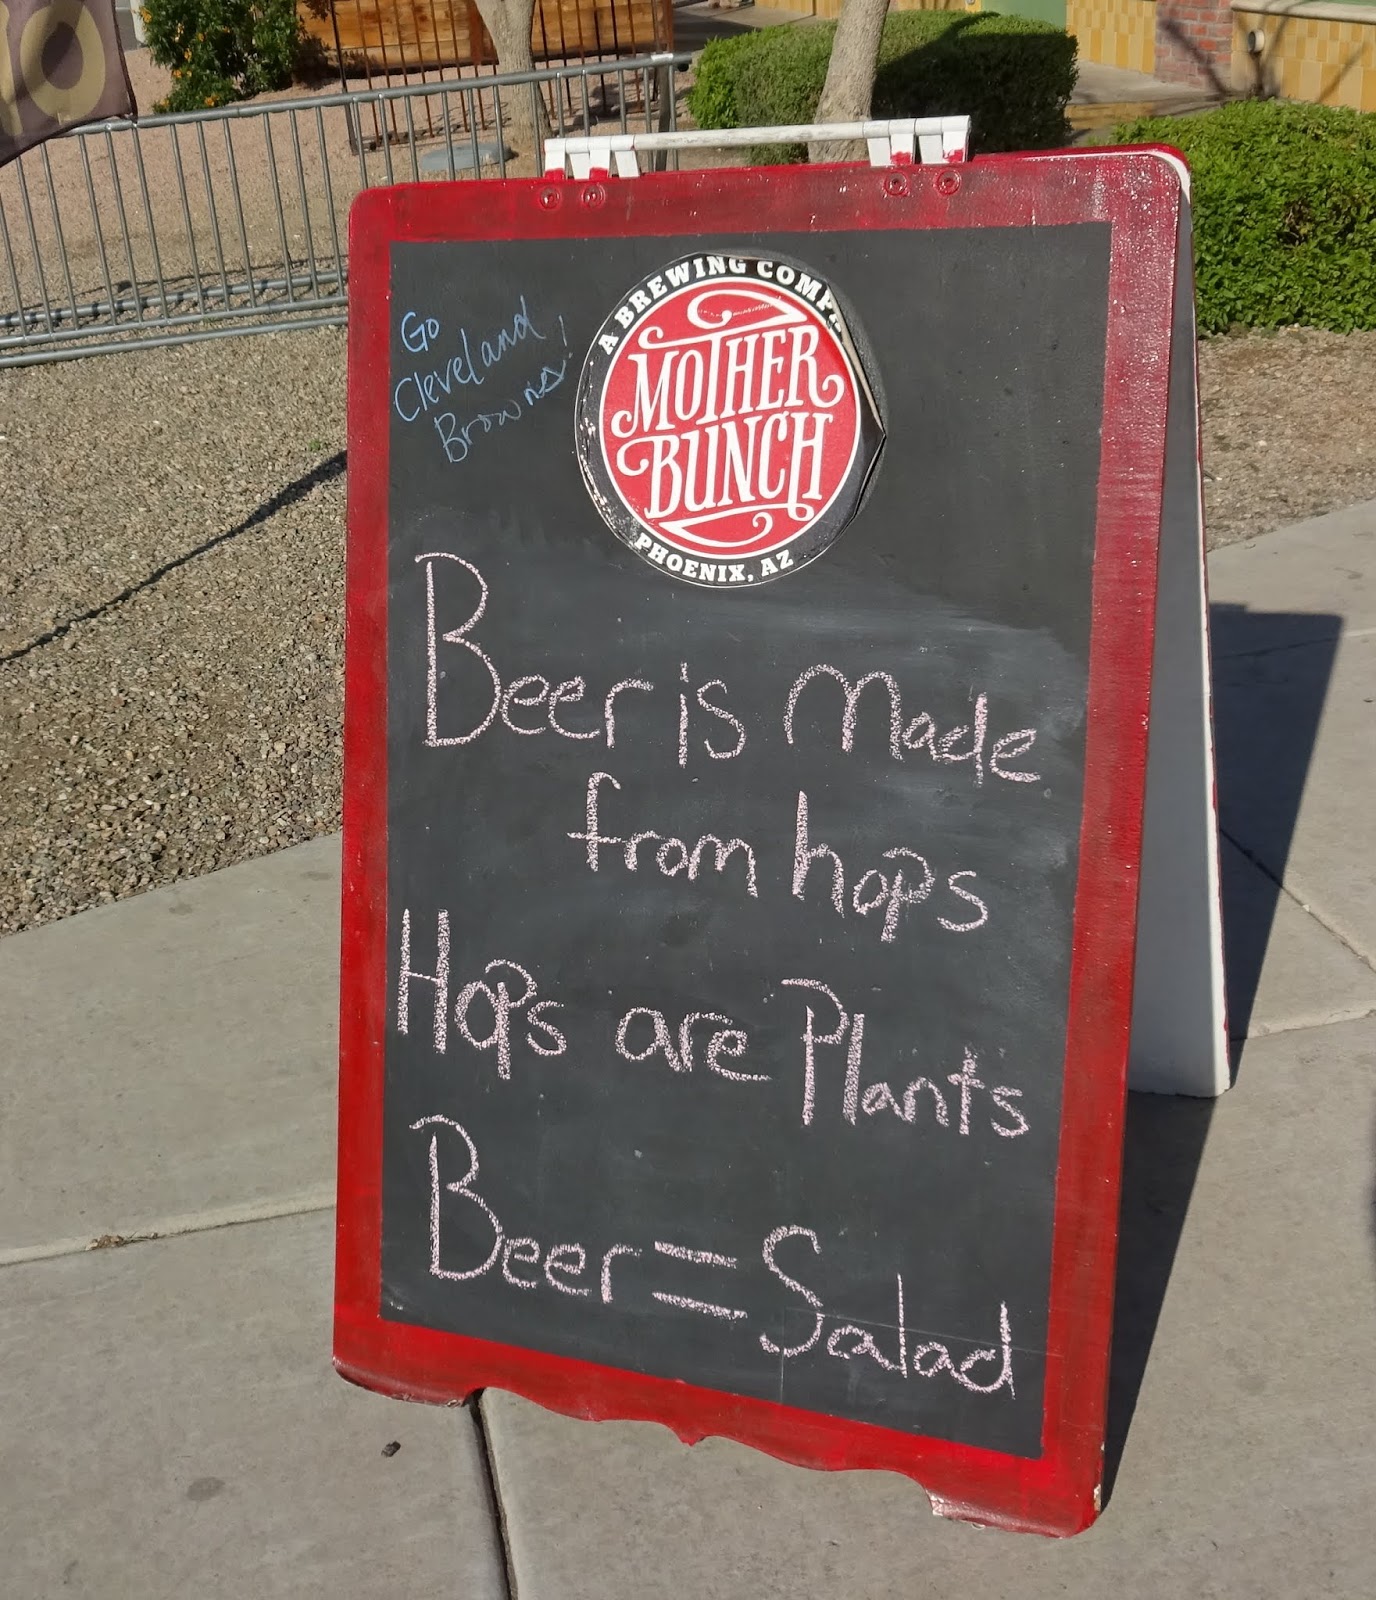 Go
Cleveland
Browns!
A BREWING COMPA
MOTHER
BUNCH
PHOENIX, AZ
Beer is made
from hops
Hops are Plants
Beer = Salad